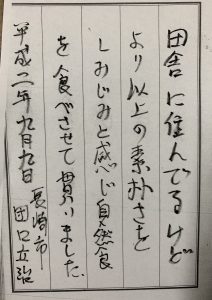 田舎に住んでるけど
より以上の素朴さを
しみじみと感じ自然食
を食べさせて貰いました.
平成二年九月九日
長崎市
田口立治